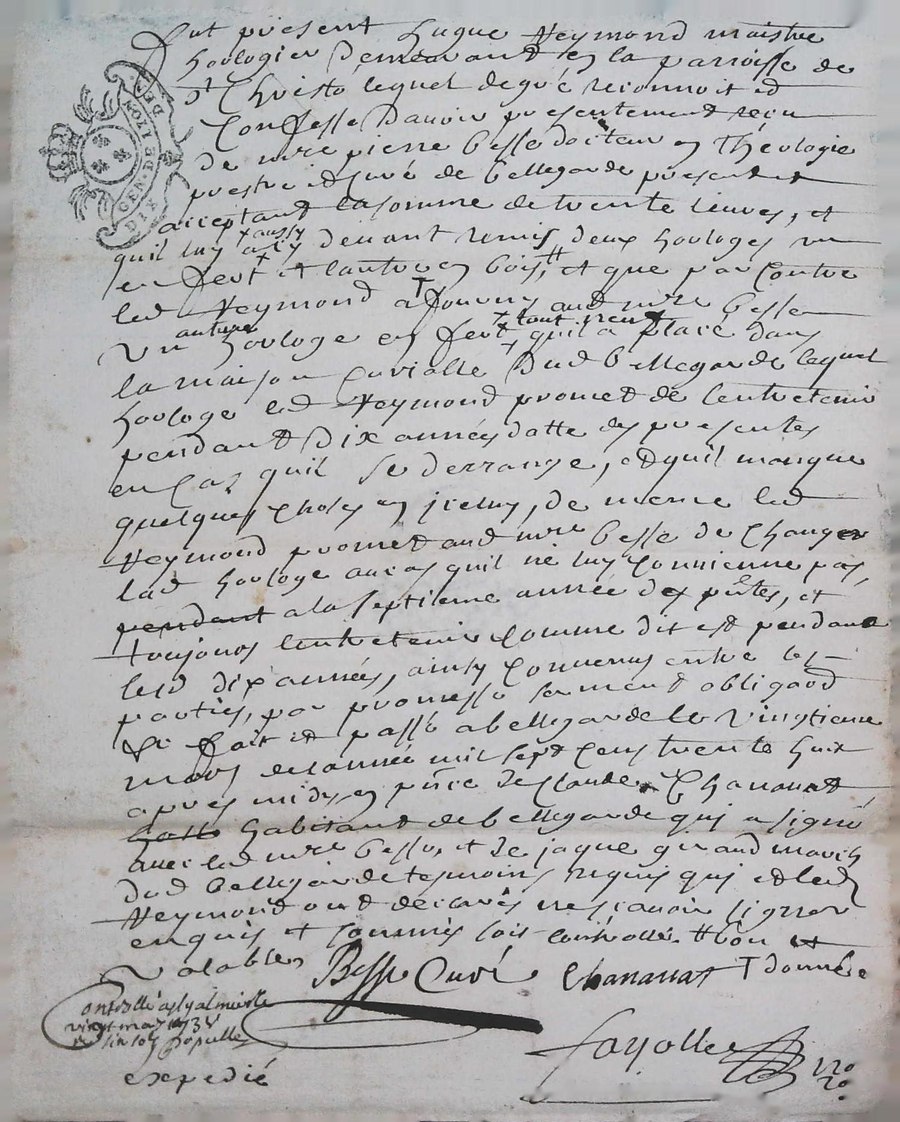 Fut présent hugue Neymond maistre
horlogier demeurant en la parroisse de
St Christo lequel de gré reconnoit et
Confesse davoir présentement reçu
de mre pierre besse docteur en Théologie
prestre et curé de bellegarde présent et
acceptant la somme de trente livres, et
quil luy a cy devant remis deux horloges un
x aussy
en fert et lautre en bois, # et que par Contre
led Neymond a fourny aud mre besse
un horloge en fert quil a placé dans
autre
x tout neuf
la maison curialle dud bellegarde lequel
horloge led Neymond promet de lentretenir
pendant dix années datte des presentes
en Cas quil se derrange, et quil manque
quelques choses en iceluy, de meme led
Neymond promet aud mre besse de Changer
lad horloge au cas quil ne luy convienne pas,
pendant a la septieme année des pntes, et
toujours lentretenir comme dit est pendant
lesd dix années, ainsy convenus entre les
parties, par promesse serment obligaon
&c fait et passé a bellegarde le vingtieme
mars de lannée mil sept cens trente huit
apres midy en pnce de Claude Chananat
habitant de bellegarde qui a signé
avec led mre besse, et de jaque giraud march
dud bellegarde tesmoins requis qui et led
Neymond ont déclarés ne scavoir signer
enquis et sommés soit controllé # bon et
valables
Besse Curé Chananat T donnée
vingt mars 1738
expedié
fayolle
DIX DEN
GEN. DE LION